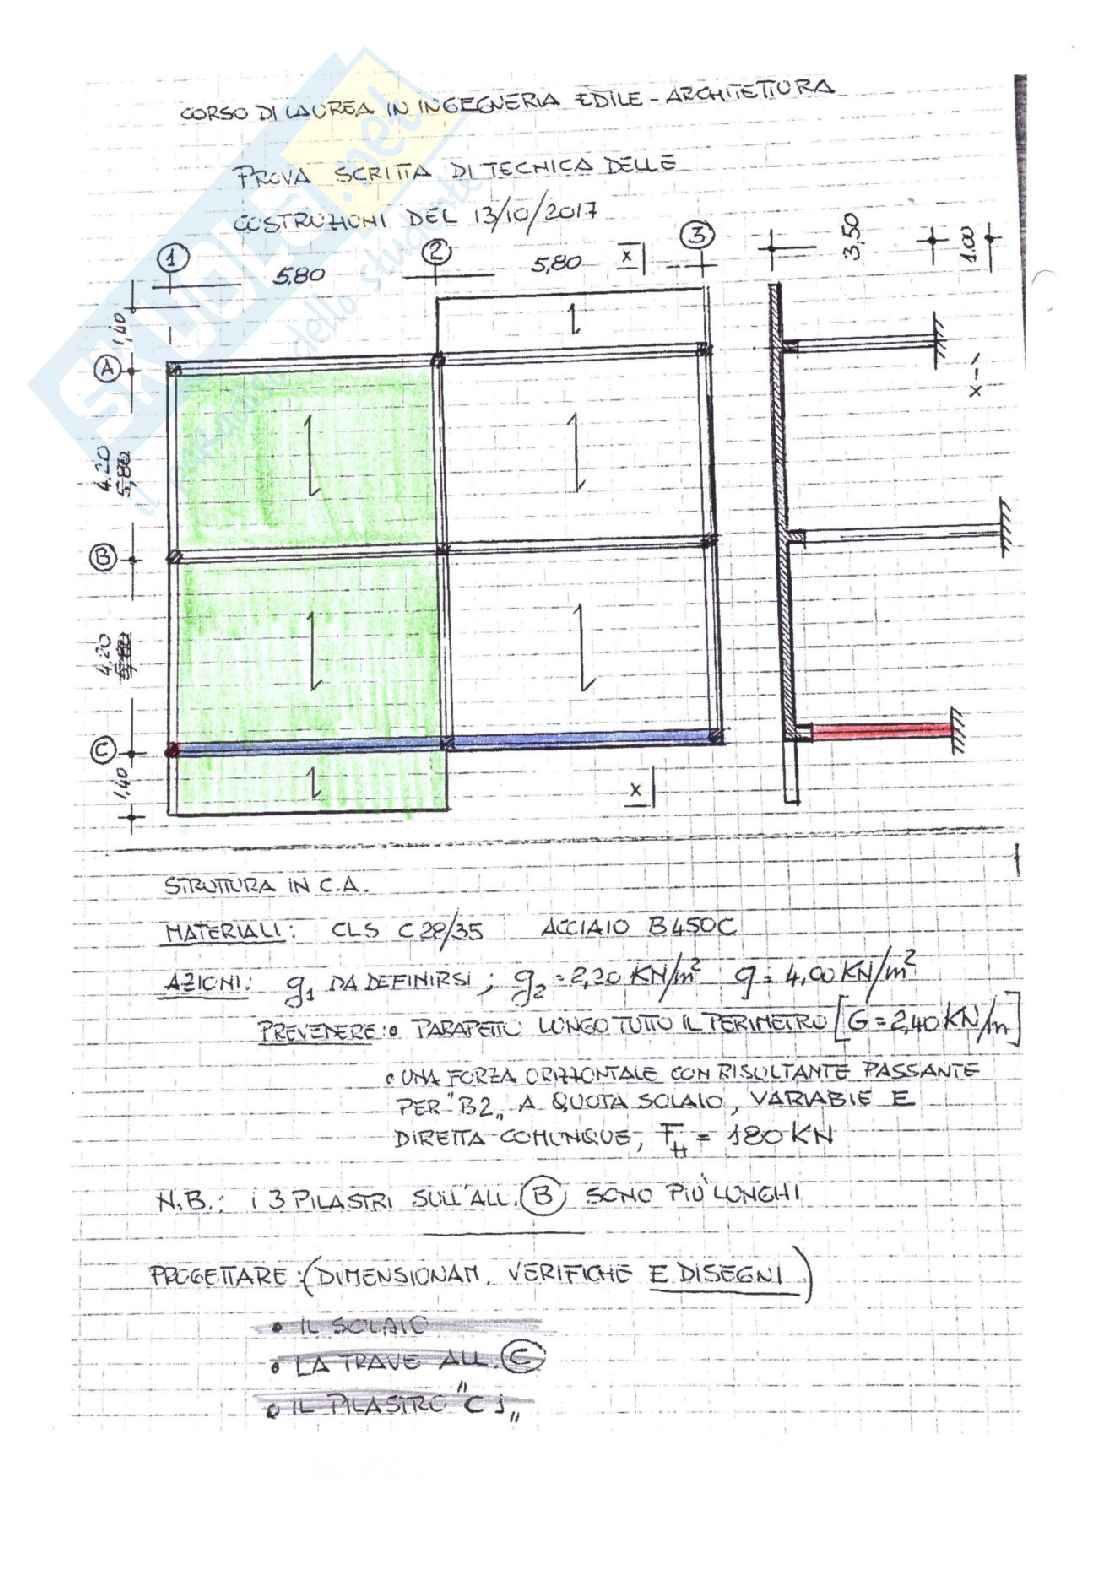 CORSO DI LAUREA IN INGEGNERIA EDILE - ARCHITETTURA
PROVA SCRITTA DI TECNICA DELLE
COSTRUZIONI DEL 13/10/2017
1 2 3
5,80 5,80 x
3,50 1.00
1,40
A
x-x
4.20 5,80
B
4.20 5,80
C
1,40
x
1
STRUTTURA IN C.A.
MATERIALI: CLS C28/35 ACCIAIO B450C
AZIONI: g1 DA DEFINIRSI; g2 = 2,20 KN/m² q = 4,00 KN/m²
PREVEDERE: • PARAPETTO LUNGO TUTTO IL PERIMETRO [G = 2,40 KN/m]
• UNA FORZA ORIZZONTALE CON RISULTANTE PASSANTE
PER "B2" A QUOTA SOLAIO, VARIABILE E
DIRETTA COMUNQUE, FH = 180 KN
N.B.: i 3 PILASTRI SULL'ALL. B SONO PIÙ LUNGHI
PROGETTARE: (DIMENSIONAM. VERIFICHE E DISEGNI)
• IL SOLAIO
• LA TRAVE ALL. C
• IL PILASTRO "C1"